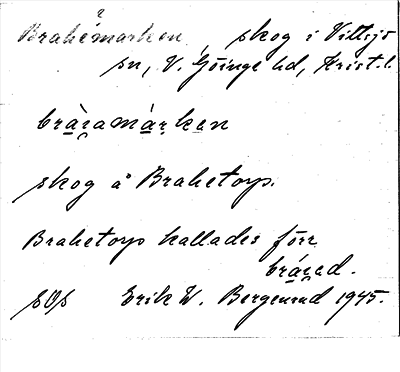 Brahemarken, skog i Vittsjö
sn, V. Göinge hd, Krist. l.
bràɾamárken
skog å Brahetorp.
Brahetorp kallades förr
Erik W. Bergenrud 1945.